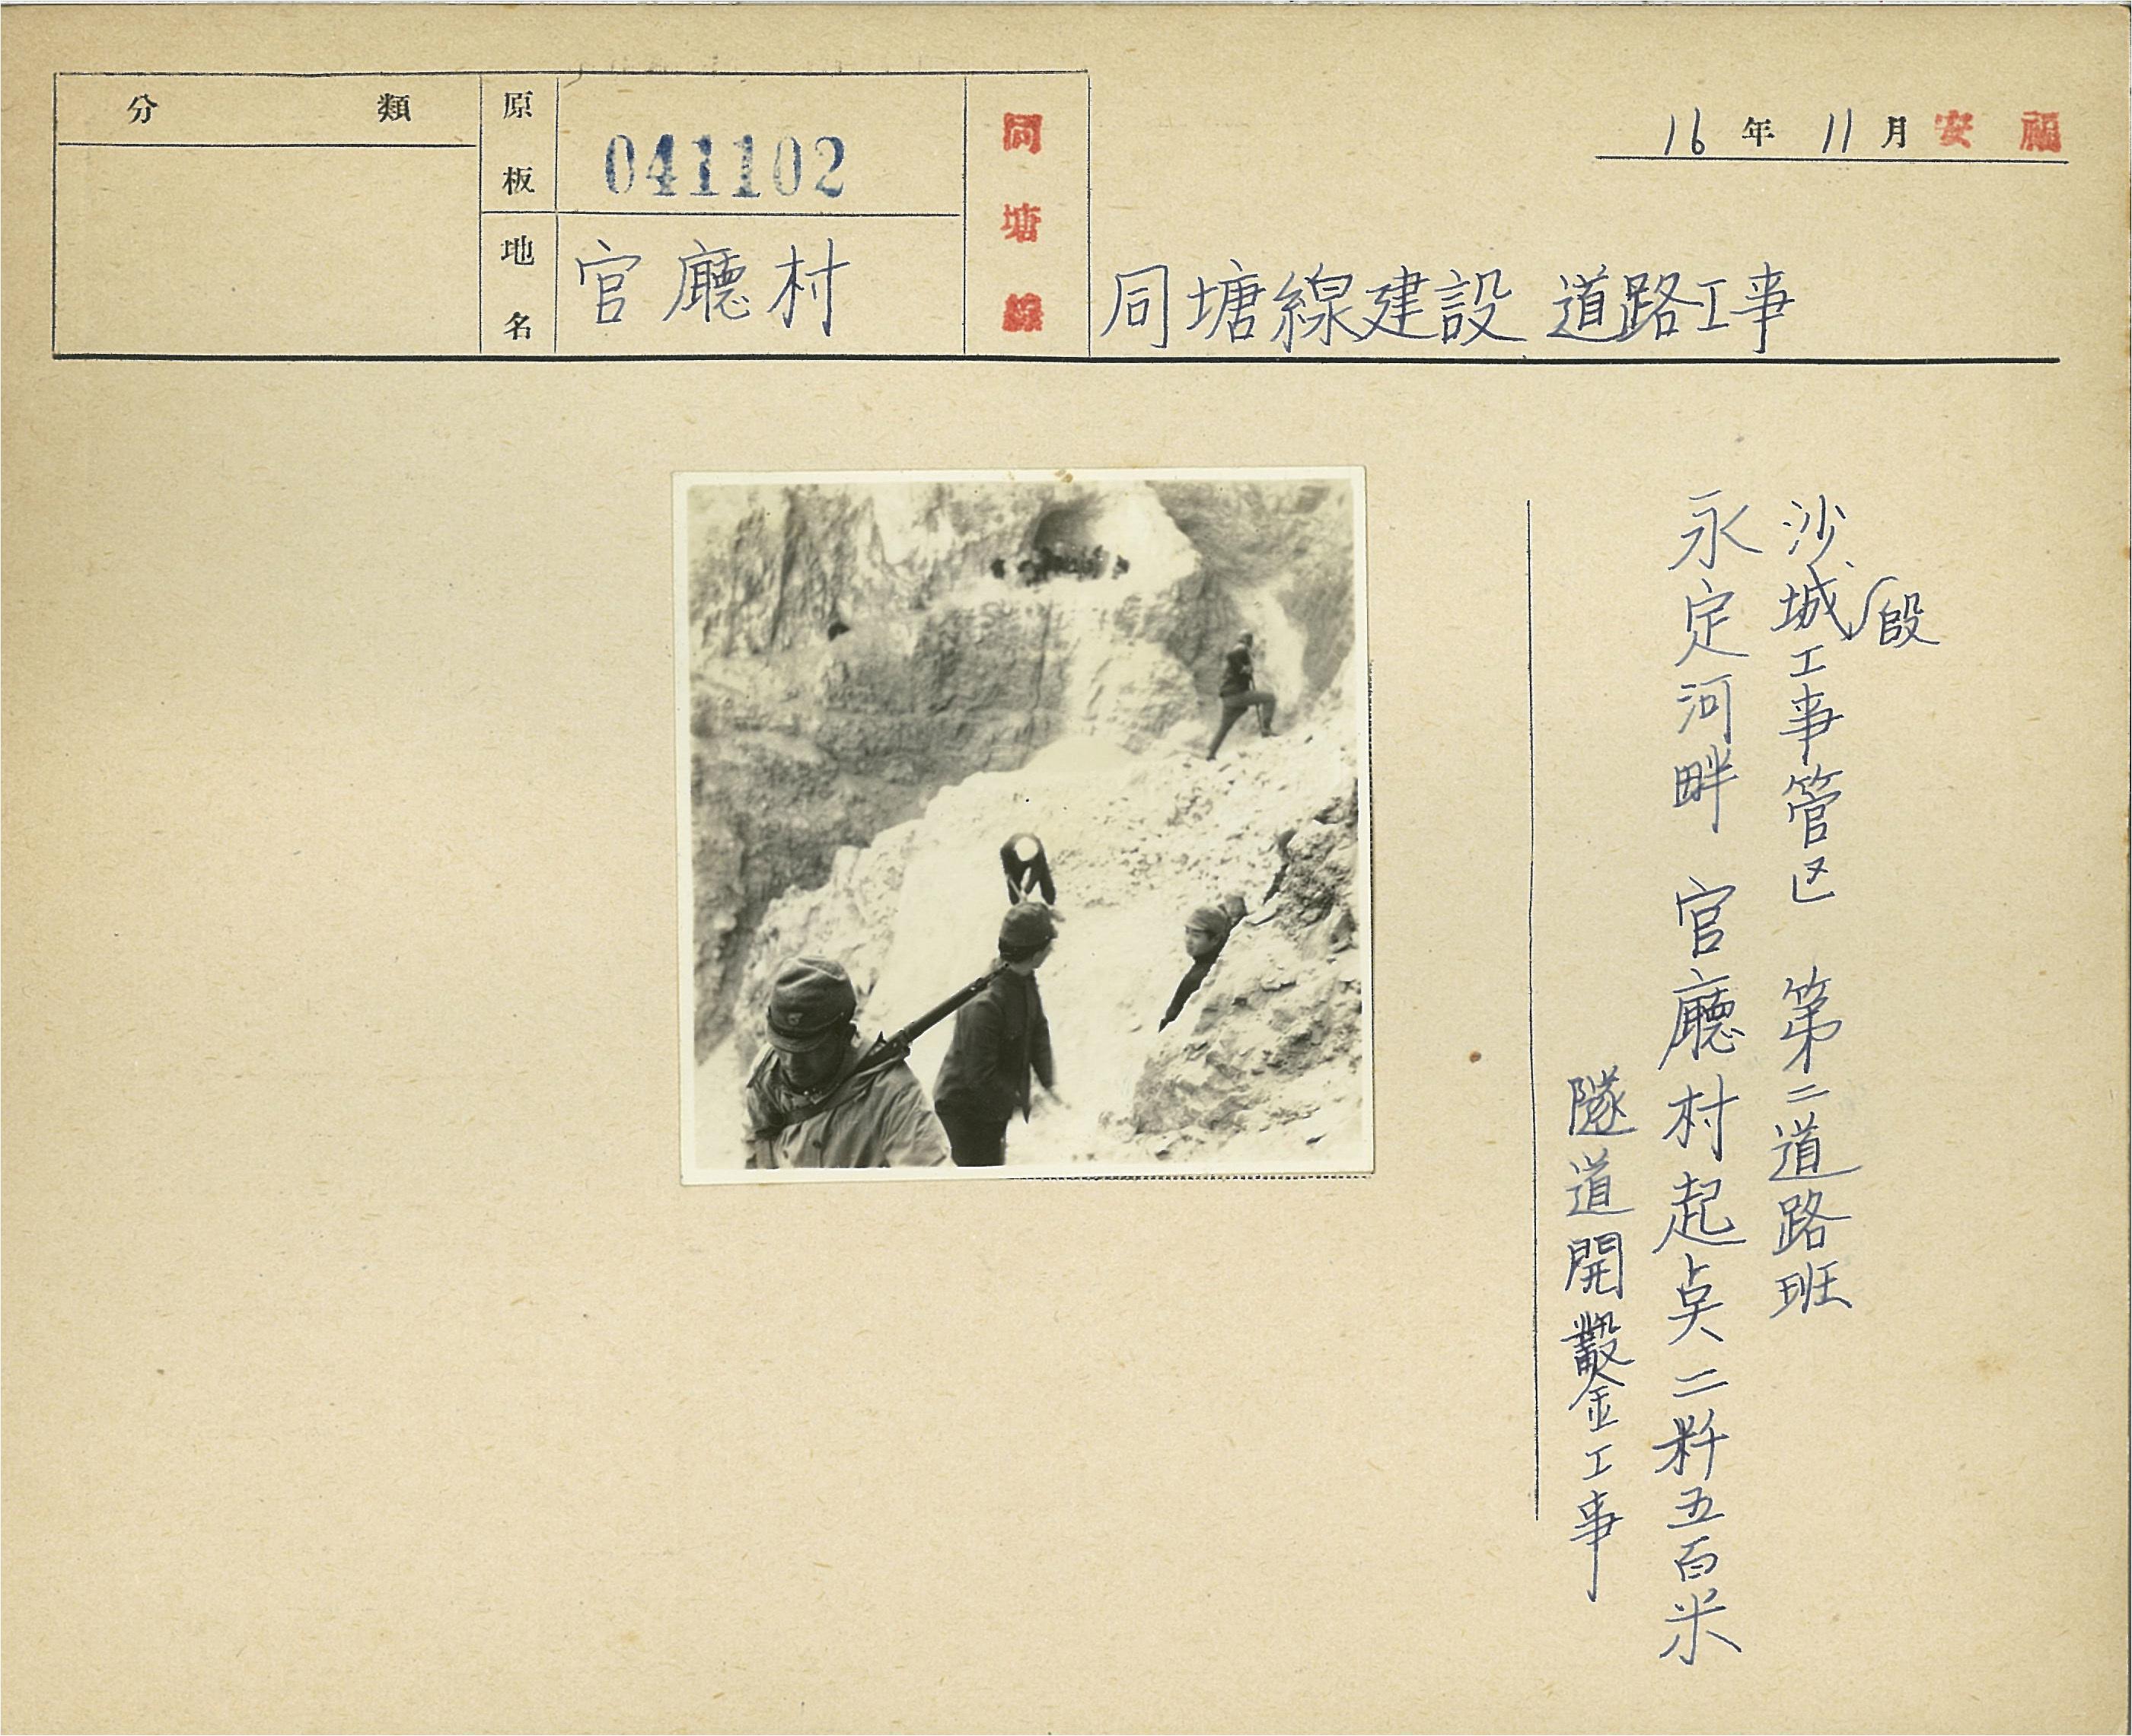 分類
原板 041102
地名 官廳村
同塘線
16年11月 安福
同塘線建設 道路工事
沙城段工事管区 第二道路班
永定河畔 官廳村起奌二粁五百米
隧道開鑿工事